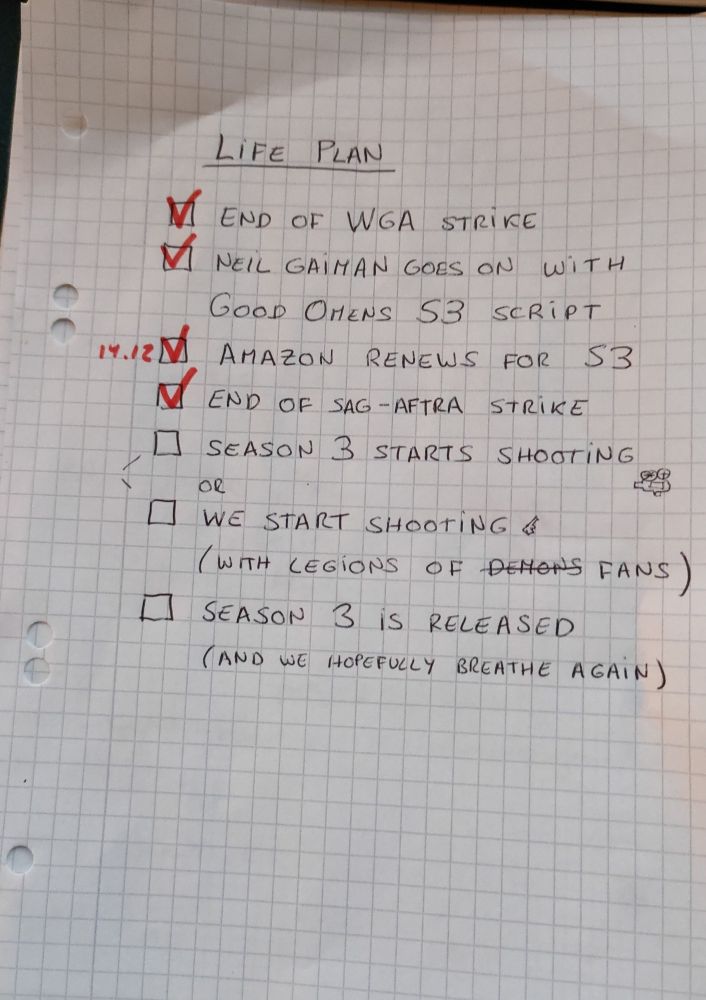 LIFE PLAN
END OF WGA STRIKE
NEIL GAIMAN GOES ON WITH
GOOD OMENS S3 SCRIPT
14.12 AMAZON RENEWS FOR S3
END OF SAG-AFTRA STRIKE
SEASON 3 STARTS SHOOTING
OR
WE START SHOOTING
(WITH LEGIONS OF DEMONS FANS)
SEASON 3 IS RELEASED
(AND WE HOPEFULLY BREATHE AGAIN)